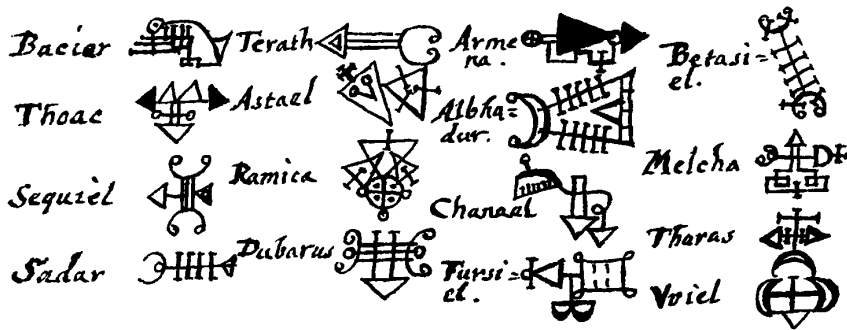 Baciar
Thoac
Sequiel
Sadar
Terath
Astael
Ramica
Dubarus
Arme
na.
Albha=
dur.
Chanaal
Fursi=
el.
Betasi=
el.
Melcha
Tharas
Vriel